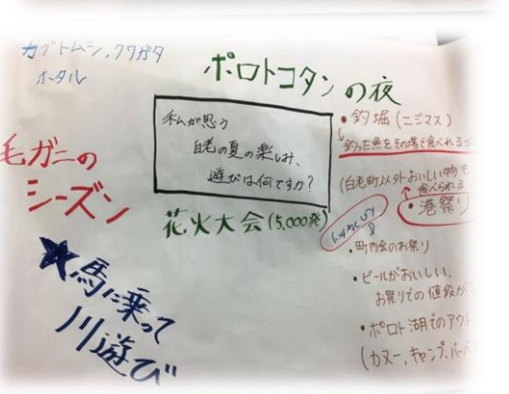 カブトムシ、クワガタ
ホタル
ポロトコタンの夜
私が思う
白老の夏の楽しみ、
遊びは何ですか?
毛ガニの
シーズン
花火大会(5,000発)
★馬に乗って
川遊び
・釣堀(ニジマス)
釣った魚をその場で食べれる
(白老町)以外おいしい物を
食べられる
・港祭り
・町内会のお祭り
・ビールがおいしい、
お祭りでの値段が
・ポロト湖でのアウト
(カヌー、キャンプ、バーベ